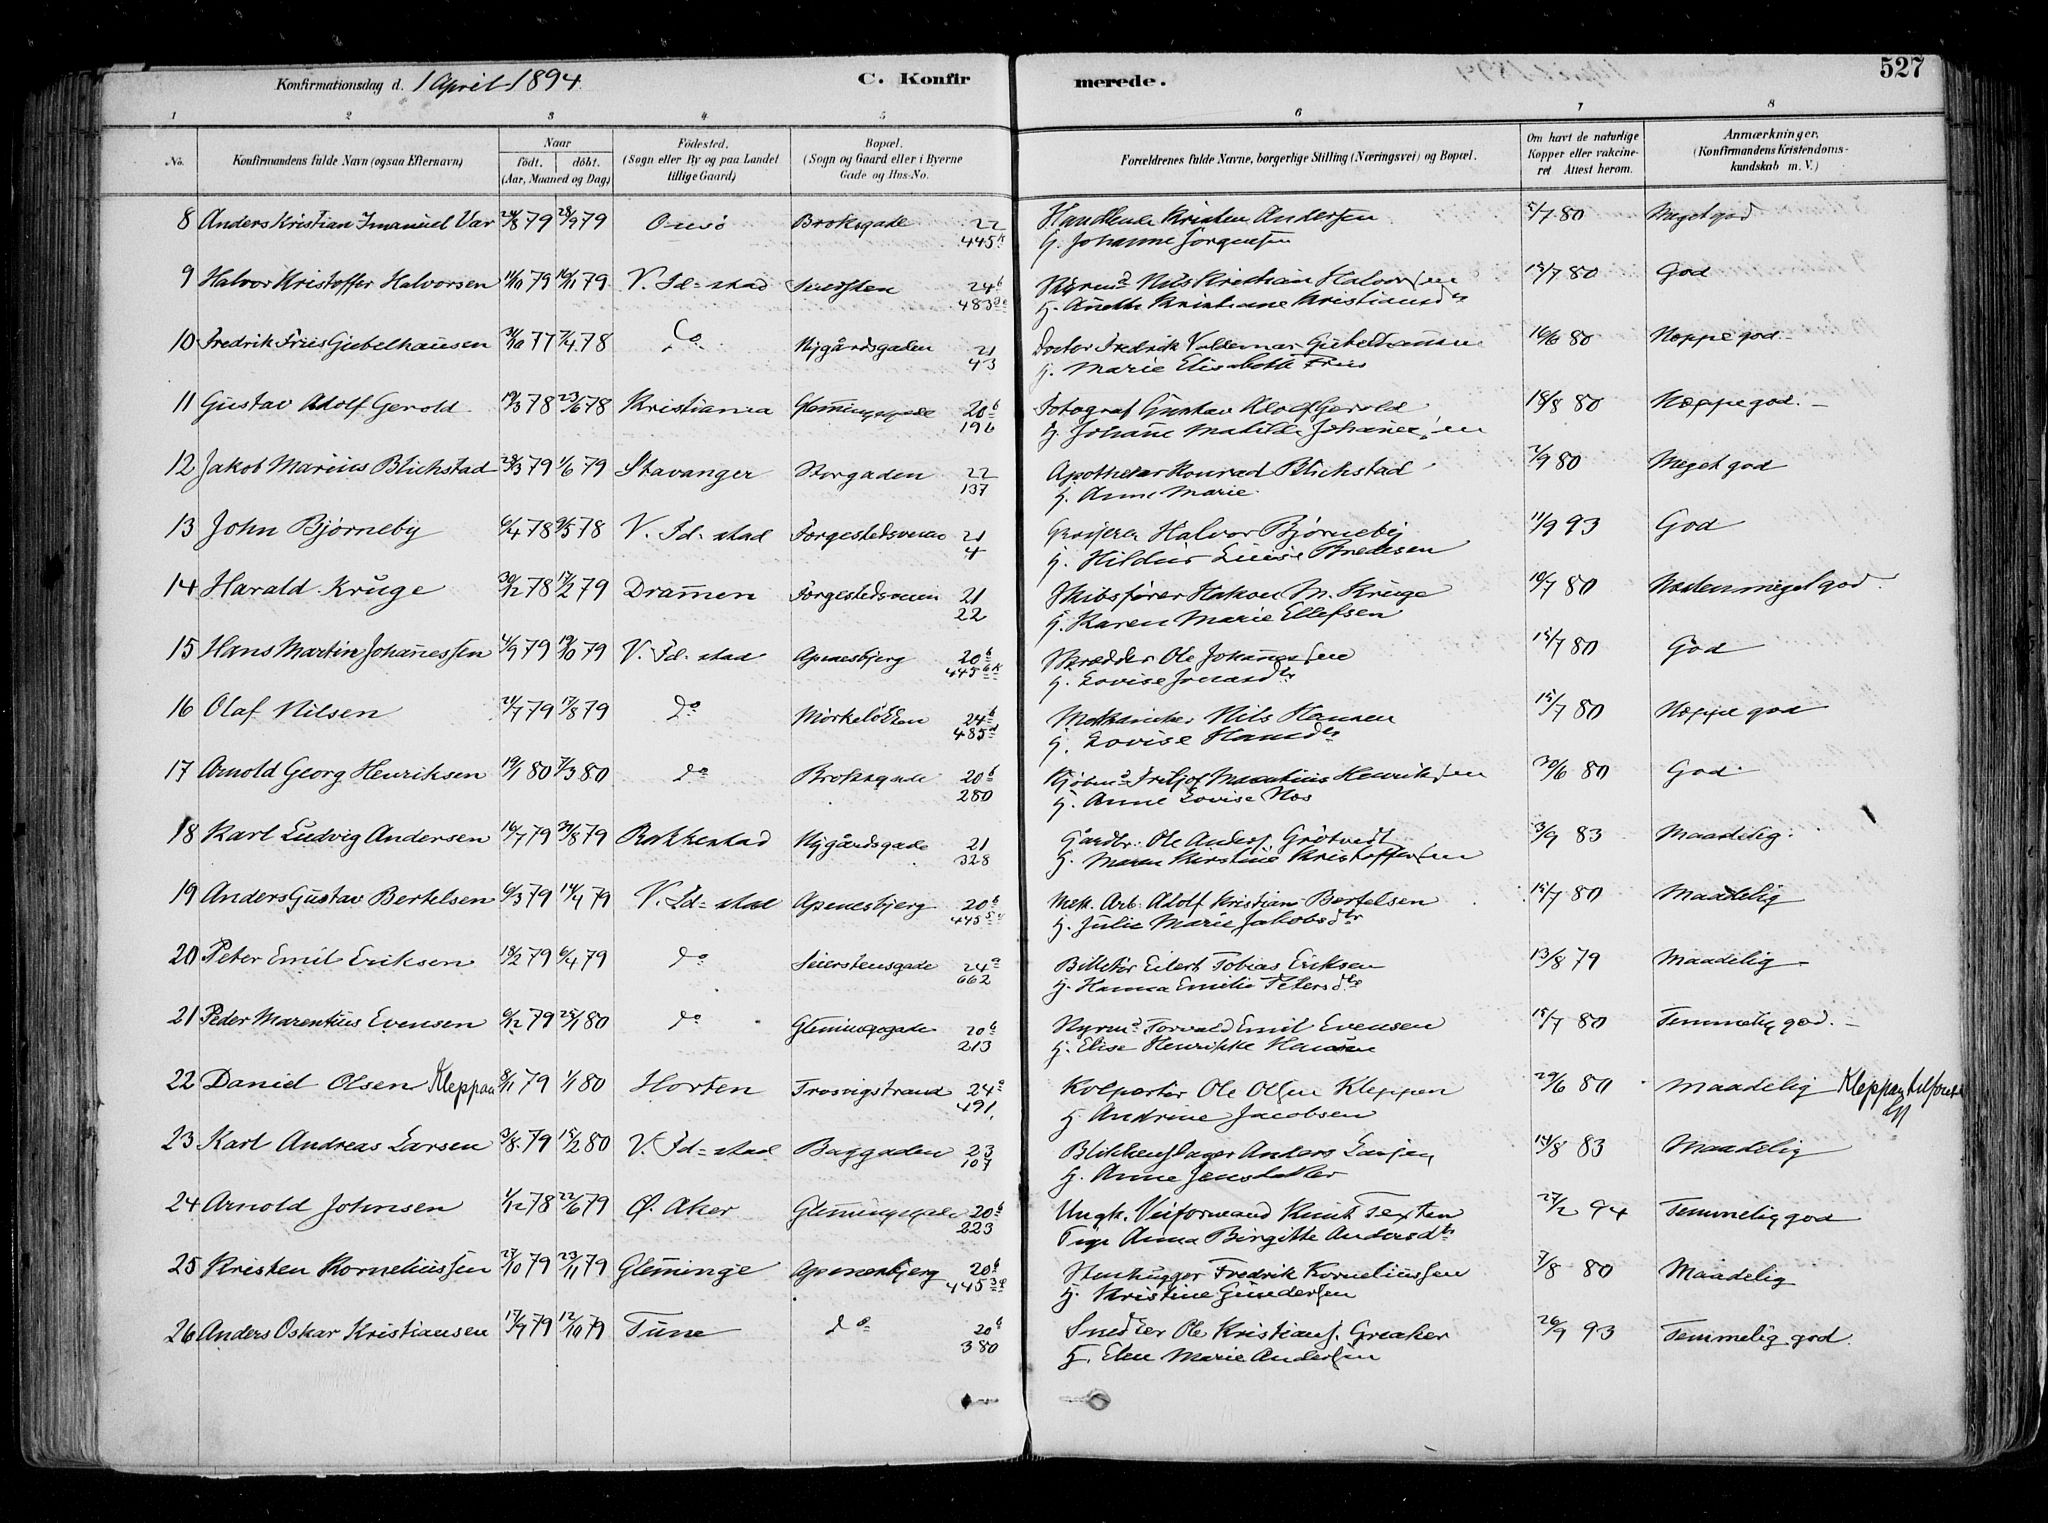 Konfirmationsdag d. 1 April 1894.
C. Konfirmerede.
527
1 2 3 4 5 6 7 8
No. Konfirmandens fulde Navn (ogsaa Efternavn) Naar født. døbt. (Aar, Maaned og Dag) Fødested. (Sogn eller By og paa Landet tillige Gaard) Bopæl. (Sogn og Gaard eller i Byerne Gade og Hus-No. Forældrenes fulde Navne, borgerlige Stilling (Næringsvei) og Bopæl. Om havt de naturlige Kopper eller vakcineret Attest herom. Anmærkninger. (Konfirmandens Kristendomskundskab m. V.)
8 Anders Kristian Imanuel Var 24/8 79 28/9 79 Onsö Broksgade 22 Handlende Kristen Andersen 5/7 80 Meget god
445 h. Johanne Jörgensen
9 Halvor Kristoffer Halvorsen 79 79 V. Fd=stad 24b Nils Kristian Halvorsen 15/7 80 God
483 h. Anette Kristiane Kristiansdtr
10 Fredrik Friis Giebelhausen 77 7/4 78 Do Nygårdsgaden 21 Doctor Fredrik Valdemar Giebelhausen 16/6 80 Neppe god
43 h. Marie Elisabeth Friis
11 Gustav Adolf Gerold 19/3 78 23/6 78 Kristiania Glemingegade 20b Fotograf Gustav Adolf Gerold 18/8 80 Neppe god.
196 h. Johane Matilde Johanesen
12 Jakob Marius Blichstad 28/3 79 1/6 79 Stavanger Storgaden 22 Apotheker Konrad Blichstad 2/9 80 Meget god
137 h. Anne Marie
13 John Bjørneby 6/4 78 9/5 78 V. Fd=stad Færgestedsveien 21 Grosserer Halvor Bjørneby 11/9 93 God
4 h. Hildur Luise Bredesen
14 Harald Kruge 30/12 78 17/2 79 Dramen Færgestedsveien 21 Skibsfører Hakon M. Kruge 10/7 80 Næsten meget god.
22 h. Karen Marie Ellefsen
15 Hans Martin Johanessen 4/9 79 19/10 79 V. Fd=stad Apenesbjerg 20b Skrædder Ole Johanesen 15/7 80 God
445 h. Lovise Jonasdtr
16 Olaf Nilsen 21/7 79 17/8 79 do 24b Nils Hansen 15/7 80 Neppe god
485 h. Lovise Hansdtr
17 Arnold Georg Henriksen 19/1 80 7/3 80 do Broksgade 20b Kjøbmd Fritjof Henriksen 30/6 80 God
280 h. Anne Lovise Næs
18 Karl Ludvig Andersen 16/7 79 31/8 79 Rakkestad Nygårdsgade 21 Gårdbr. Ole Anders. Grötvedt 3/9 83 Maadelig.
328 h. Maren Kirstine Kristoffersen
19 Anders Gustav Bertelsen 6/3 79 14/4 79 V. Fd=stad Apenesbjerg 20b Mek. Arb. Adolf Kristian Bertelsen 15/7 80 Maadelig
445 h. Julie Marie Jakobsdtr
20 Peter Emil Eriksen 18/2 79 6/4 79 do Seierstensgade 24a Billetör Eilert Tobias Eriksen 13/8 79 Maadelig
662 h. Hanna Emilie Petersdtr
21 Peder Marentius Evensen 6/12 79 25/1 80 do Glemingegade 20b Torvald Emil Evensen 15/7 80 Temmelig god.
213 h. Elise Henrikke Hansen
22 Daniel Olsen Kleppan 8/11 79 1/1 80 Horten Trosvigstrand 24a Kolportør Ole Olsen Kleppen 29/6 80 Maadelig Kleppan tilføiet
491. h. Andrine Jacobsen
23 Karl Andreas Larsen 3/8 79 15/2 80 V. Fd=stad Baggaden 23 Blikkenslager Anders Larsen 14/8 83 Maadelig
107 h. Anne Jensdatter
24 Arnold Johnsen 1/12 78 22/6 79 Ø. Aker Glemingegade 20b Ungk. Veiformand Knut Texten 27/2 94 Temmelig god
223 Pige Anna Birgitte Andersdtr
25 Kristen Korneliussen 27/10 79 23/11 79 Gleminge Apenesbjerg 20b Stenhugger Fredrik Korneliussen 7/8 80 Maadelig
445 h. Kristine Gundersen
26 Anders Oskar Kristiansen 17/9 79 12/10 79 Tune do 20b Snedker Ole Kristians. Greaker 26/9 93 Temmelig god.
380 h. Elen Marie Andersen